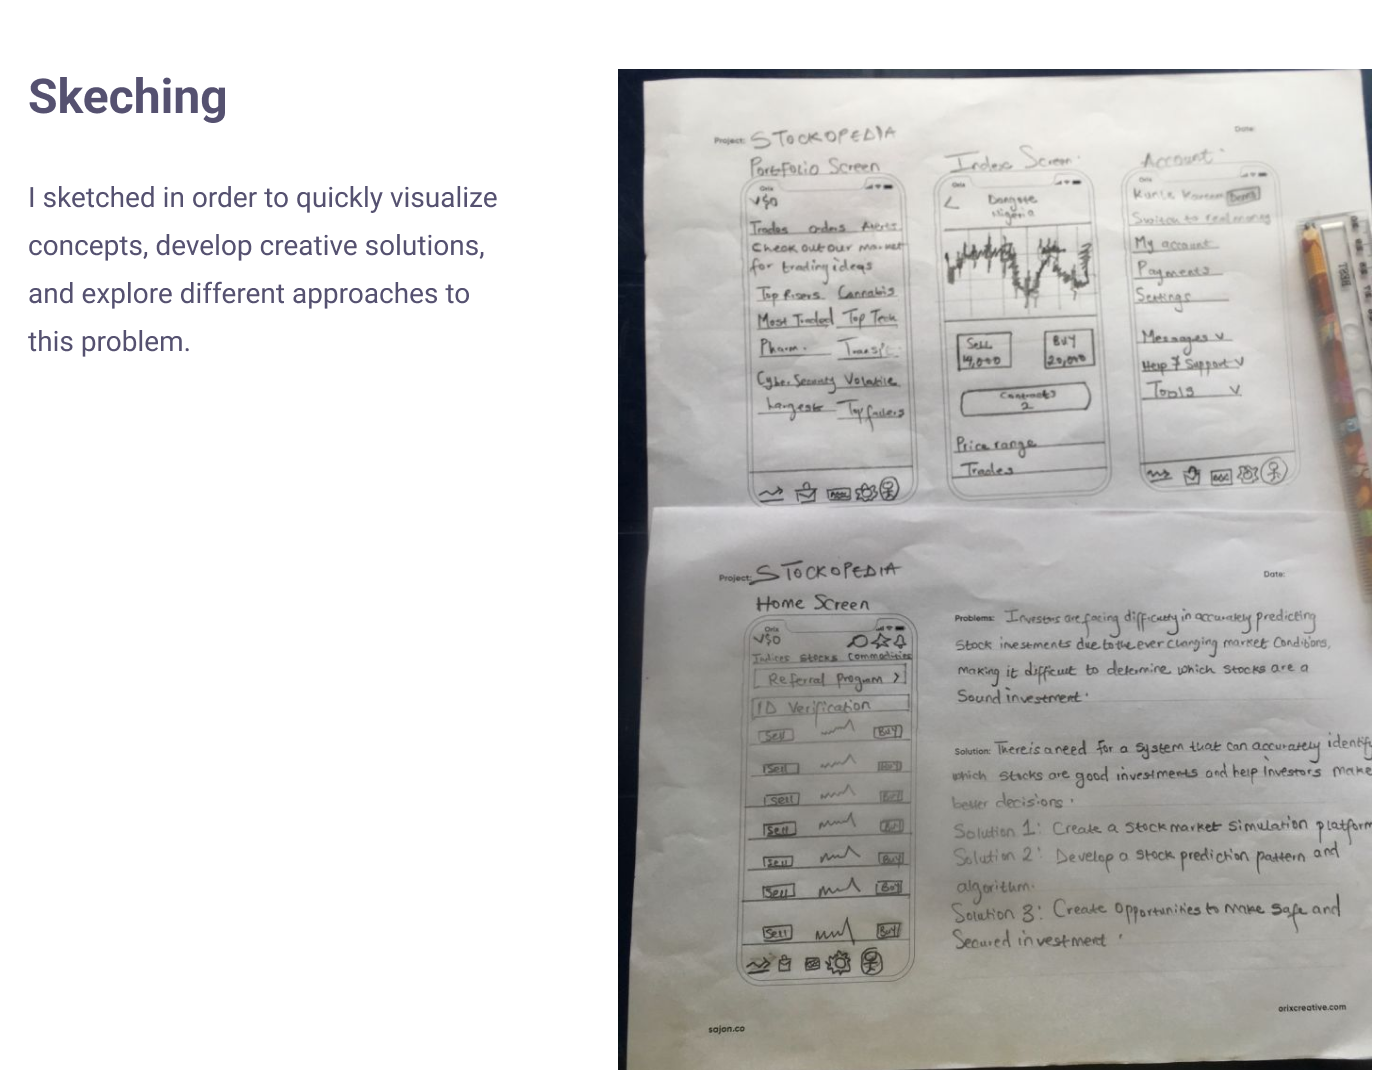 Skeching
I sketched in order to quickly visualize
concepts, develop creative solutions,
and explore different approaches to
this problem.
Project: STOCKOPEDIA
Date:
Portfolio Screen
Orix
V$0
Trades orders Alerts
Check out our market
for trading ideas
Top Risers Cannabis
Most Traded Top Tech
Pharm.
Cyber Security Volatile
Largest Top fallers
Index Screen
Orix
Dangote
Nigeria
Sell
19,000
BUY
20,000
Contracts
2
Price range
Trades
Account
Orix
Kareem
Switch to real money
My account
Payments
Settings
Messages v
Help & Support v
Tools v
Project: STOCKOPEDIA
Date:
Home Screen
Orix
V$0
Indices Stocks Commodities
Referral Program >
ID Verification
Sell Buy
Sell Buy
Sell Buy
Sell Buy
Sell Buy
Sell Buy
Sell Buy
Problems: Investors are facing difficulty in accurately predicting
Stock investments due to the ever changing market Conditions,
making it difficult to determine which stocks are a
Sound investment.
Solution: There is a need for a system that can accurately identify
which stocks are good investments and help investors make
better decisions.
Solution 1: Create a stock market simulation platform
Solution 2: Develop a stock prediction pattern and
algorithm.
Solution 3: Create opportunities to make safe and
Secured investment.
sajon.co
orixcreative.com